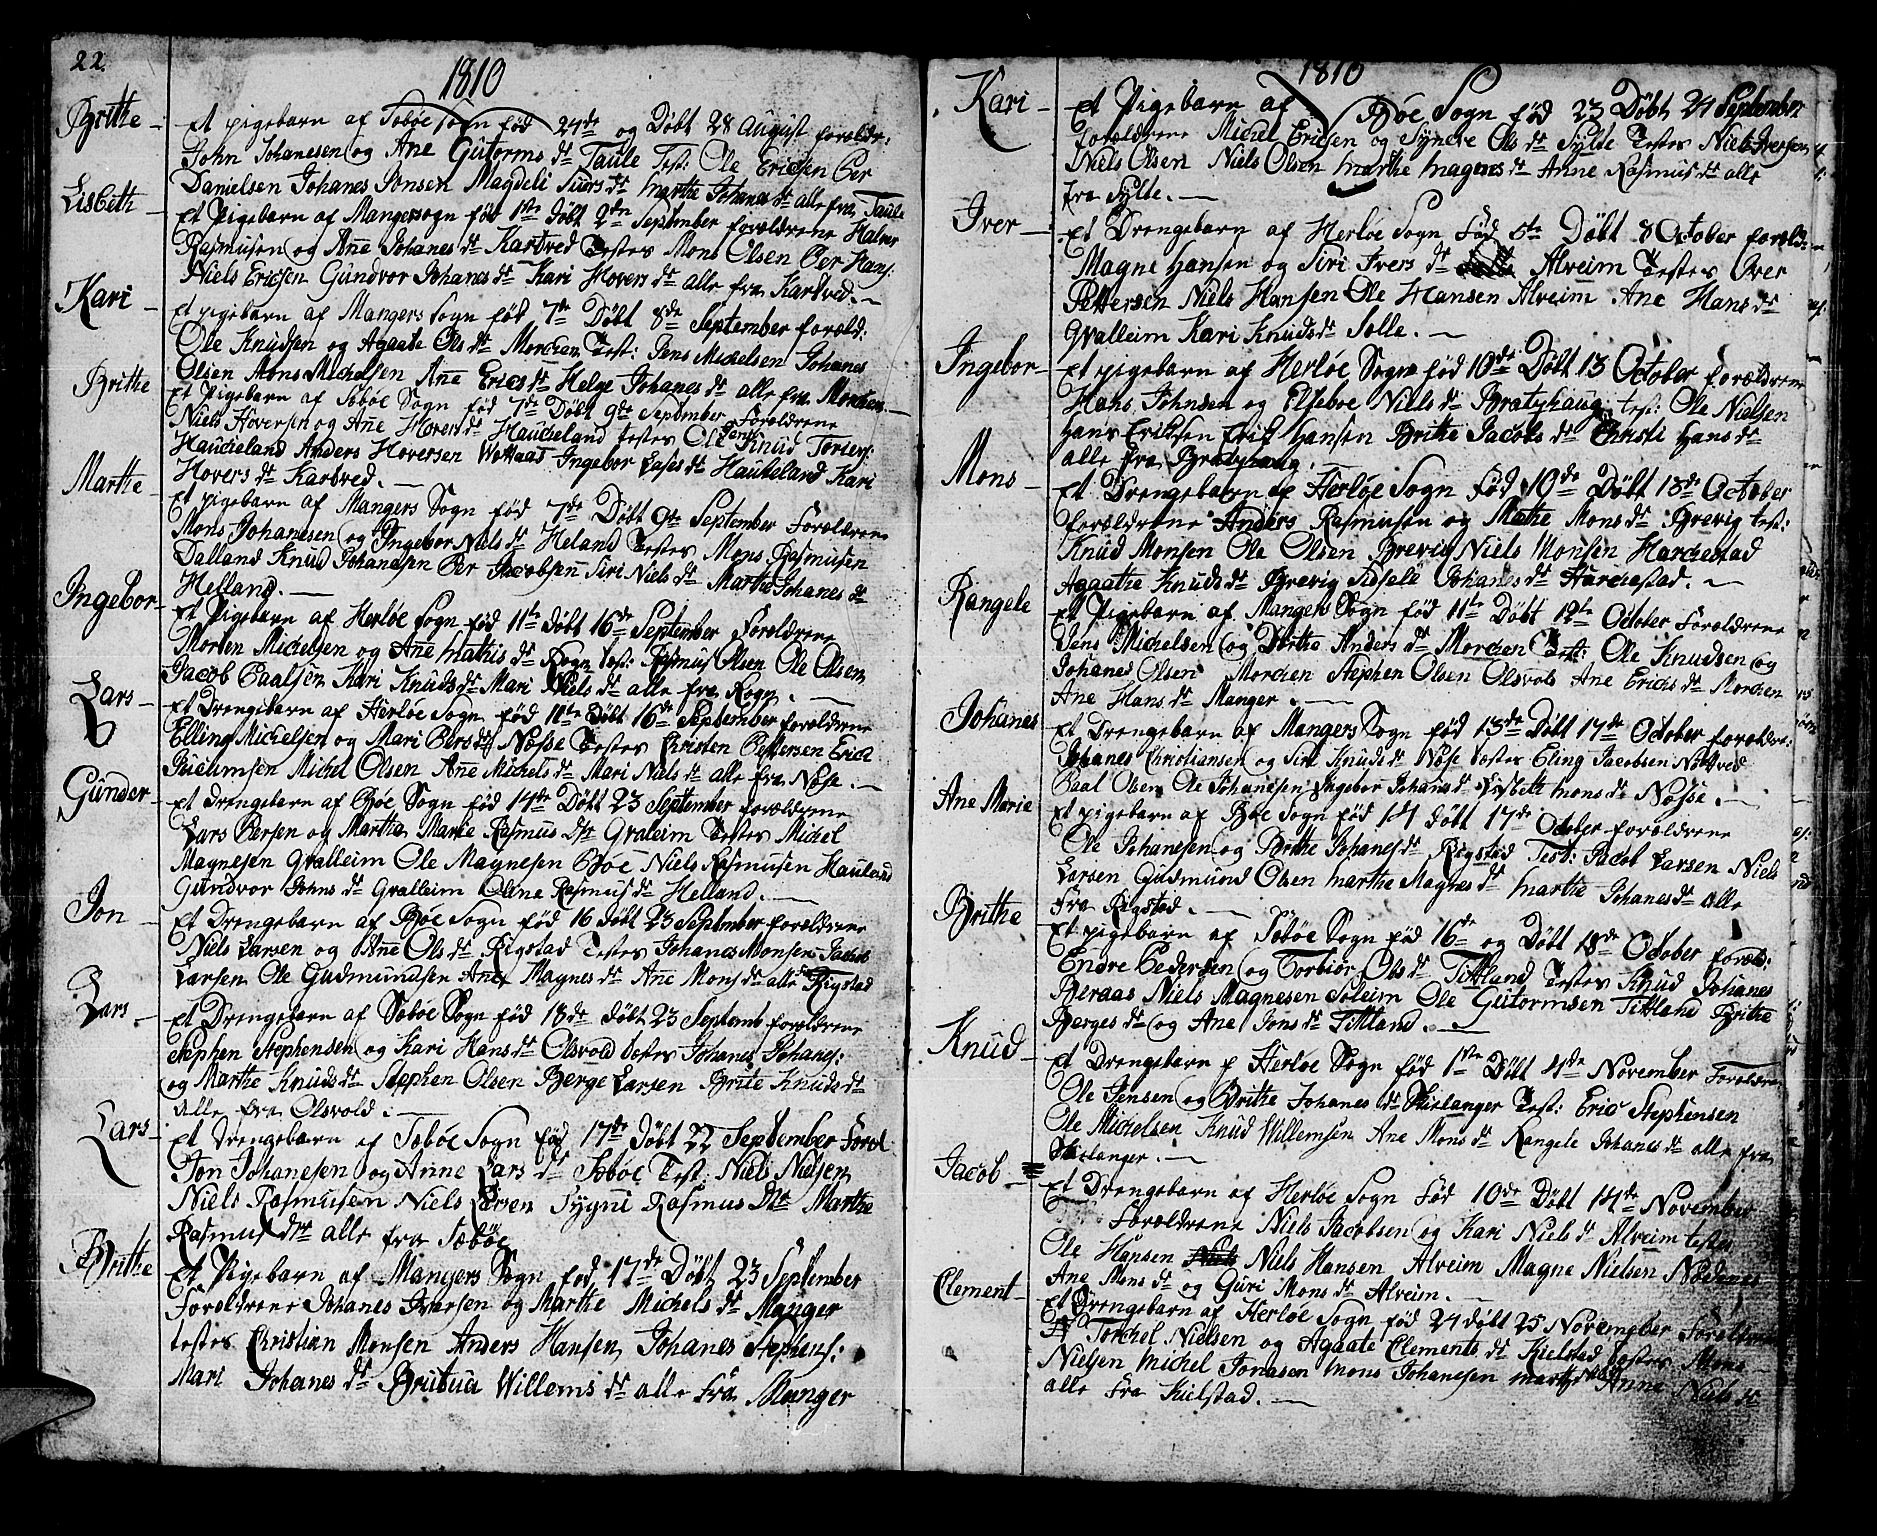 22.
1810
Brithe - Et pigebarn af Sæbøe Sogn fød 27de og Døbt 28 August forældr:
John Johanesen og Ane Gutorms dr Taule Test: Ole Ericsen Per
Danielsen Johanes Jonsen Magdeli Siurs dr Marthe Johanes dr alle fra Taule
Lisbeth - Et Pigebarn af Mangersogn fød 1ste Døbt 2den September forældrene Halvor
Rasmusen og Ane Johanes dr Kartved Testes Mons Olsen Per Hans:
Niels Ericsen Gundvor Johanes dr Kari Hovers dr alle fra Kartved.
Kari - Et pigebarn af Mangers Sogn fød 7de Døbt 8de September foræld:
Ole Knudsen og Agaate Ols dr Morchen Test: Jens Michelsen Johanes
Olsen Mons Michelsen Ane Erics dr Helge Johanes dr alle fra Morchen.
Brithe Et Pigebarn af Sæbøe Sogn fød 7de Døbt 9de September Forældrene
Niels Hoversen og Ane Hovers dr Haucheland testes Ole Knud
Haucheland Anders Hoversen Ingebor Lases dr Haukeland Kari
Hovers dr Kartved.
Marthe - Et pigebarn af Mangers Sogn fød 7de Døbt 9de September Forældrene
Mons Johanesen og Ingebor Niels dr Heland Testes Mons Rasmusen
Dalland Knud Johanesen Per Jacobsen Siri Niels dr Marthe Johanes dr
Helland.
Ingebor - Et Pigebarn af Herløe Sogn fød 11te Døbt 16de September Forældrene
Morten Michelsen og Ane Mathis dr Rogn test: Rasmus Olsen Ole Olsen
Jacob Paalsen Kari Knuds dr Mari Niels dr alle fra Rogn.
Lars - Et Drengebarn af Herløe Sogn fød 11te Døbt 16de September forældrene
Elling Michelsen og Mari Pers dr Nøsse Testes Christen Pettersen Erick
Michel Olsen Ane Michels dr Mari Niels dr alle fra Nøse.
Gunder - Et drengebarn af Bøe Sogn fød 14de Døbt 23 September forældrene
Lars Persen og Marthe Marie Rasmus dr Graleim Testes Michel
Magnesen Gralleim Ole Magnesen Bøe Niels Rasmusen Hauland
Gundvor Johns dr Gralleim Oline Rasmus dr Helland.
Jon - Et Drengebarn af Bøe Sogn fød 16 Døbt 23 September forældrene
Niels Larsen og Ane Ols dr Rigstad Testes Johanes Monsen Jacob
Larsen Ole Gudmundsen Ane Magnes dr Ane Mons dr alle Rigstad
Lars - Et Drengebarn af Sæbøe Sogn fød 18de døbt 23 Septemb forældrene
Stephen Stephensen og Kari Hans dr Olsvold testes Johanes Johanes:
og Marthe Knuds dr Stephen Olsen Berge Larsen Brite Knuds dr
alle fra Olsvold.
Lars - Et Drengebarn af Sæbøe Sogn fød 17de Døbt 22 September Foræl
Jon Johanesen og Anne Lars dr Sæbøe Test: Niels Nielsen
Niels Rasmusen Niels Larsen Sygni Rasmus dr Marthe
Rasmus dr alle fra Sæbøe
Brithe Et Pigebarn af Mangers Sogn fød 17de Døbt 23 September
Forældrene Johanes Iversen og Marthe Michels dr Manger
testes Christian Monsen Anders Hansen Johanes Stephens:
Mari Johanes dr Willems dr alle fra Manger
1810
Kari - Et Pigebarn af Bøe Sogn fød 23 Døbt 24 September
forældrene Michel Ericsen og Syneve Ols dr Sylte Testes Niels Iversen
Niels Olsen Niels Olsen Marthe Magnes dr Anne Rasmus dr alle
fra Sylte.
Iver - Et Drengebarn af Herløe Sogn Fød 5te Døbt 8 October foræld:
Magne Hansen og Siri Ivers dr Alveim Testes Iver
Pettersen Niels Hansen Ole Hansen Alveim Ane Hans dr
Walleim Kari Knuds dr Solle.
Ingebor - Et pigebarn af Herløe Sogn fød 10de Døbt 13 October forældrene
Hans Johnsen og Elseboe Niels dr Bratzhaug test: Ole Nielsen
Hans Eriksen Erik Hansen Brithe Jacobs dr Christi Hans dr
alle fra Bratzhaug.
Mons - Et Drengebarn af Herløe Sogn Fød 10de Døbt 13de October
forældrene Anders Rasmusen og Mathe Mons dr Brevig test:
Knud Monsen Ole Olsen Brevig Niels Monsen Harchestad
Agaathe Knuds dr Brevig Sidsele Johanes dr Harchestad.
Rangele Et Pigebarn af Mangers Sogn fød 11te Døbt 12te October Forældrene
Jens Michelsen og Dorthe Anders dr Morchen Test: Ole Knudsen og
Johanes Olsen Morchen Stephen Olsen Olsvold Ane Erichs dr Morchen
Ane Hans dr Manger.
Johanes Et Drengebarn af Mangers Sogn fød 13de Døbt 17de October forældre:
Johanes Christiansen og Siri Knuds dr Nøse testes Eling Jacobsen Nøttved
Paal Olsen Ole Johanesen Ingebor Johanes dr Lisbeth Mons dr Nøsse.
Ane Marie Et pigebarn af Bøe Sogn fød 14 døbt 17de October forældrene
Ole Johanesen og Brithe Johanes dr Rigstad Test: Jacob Larsen Niels
Larsen Gudmund Olsen Marthe Magnes dr Marthe Johanes dr alle
fra Rigstad.
Brithe Et pigebarn af Sæbøe Sogn fød 16de og Døbt 18de October foræld:
Endre Pedersen og Torbiør Ols dr Titland Testes Knud Johanes
Beraas Niels Magnesen Soleim Ole Gutormsen Titland Brithe
Berges dr og Ane Jons dr Titland.
Knud - Et Drengebarn f Herløe Sogn fød 1ste Døbt 4de November Forældren
Ole Jensen og Brithe Johanes dr Skielanger Test: Eric Stephensen
Ole Michelsen Knud Willemsen Ane Mons dr Rangele Johanes dr alle fra
Skielanger.
Jacob - Et Drengebarn af Herløe Sogn Fød 10de Døbt 14de November
Forældrene Niels Jacobsen og Kari Niels dr Alveim testes
Ole Hansen Niels Niels Hansen Alveim Magne Nielsen
Ane Mons dr og Guri Mons dr Alveim.
Clement - Et Drengebarn af Herløe Sogn fød 24 døbt 25 November Forældrene
Torchel Nielsen og Agaate Clements dr Kielstad testes Mons
Nielsen Michel Jonasen Mons Johanesen Anne Niels dr
alle fra Kielstad.